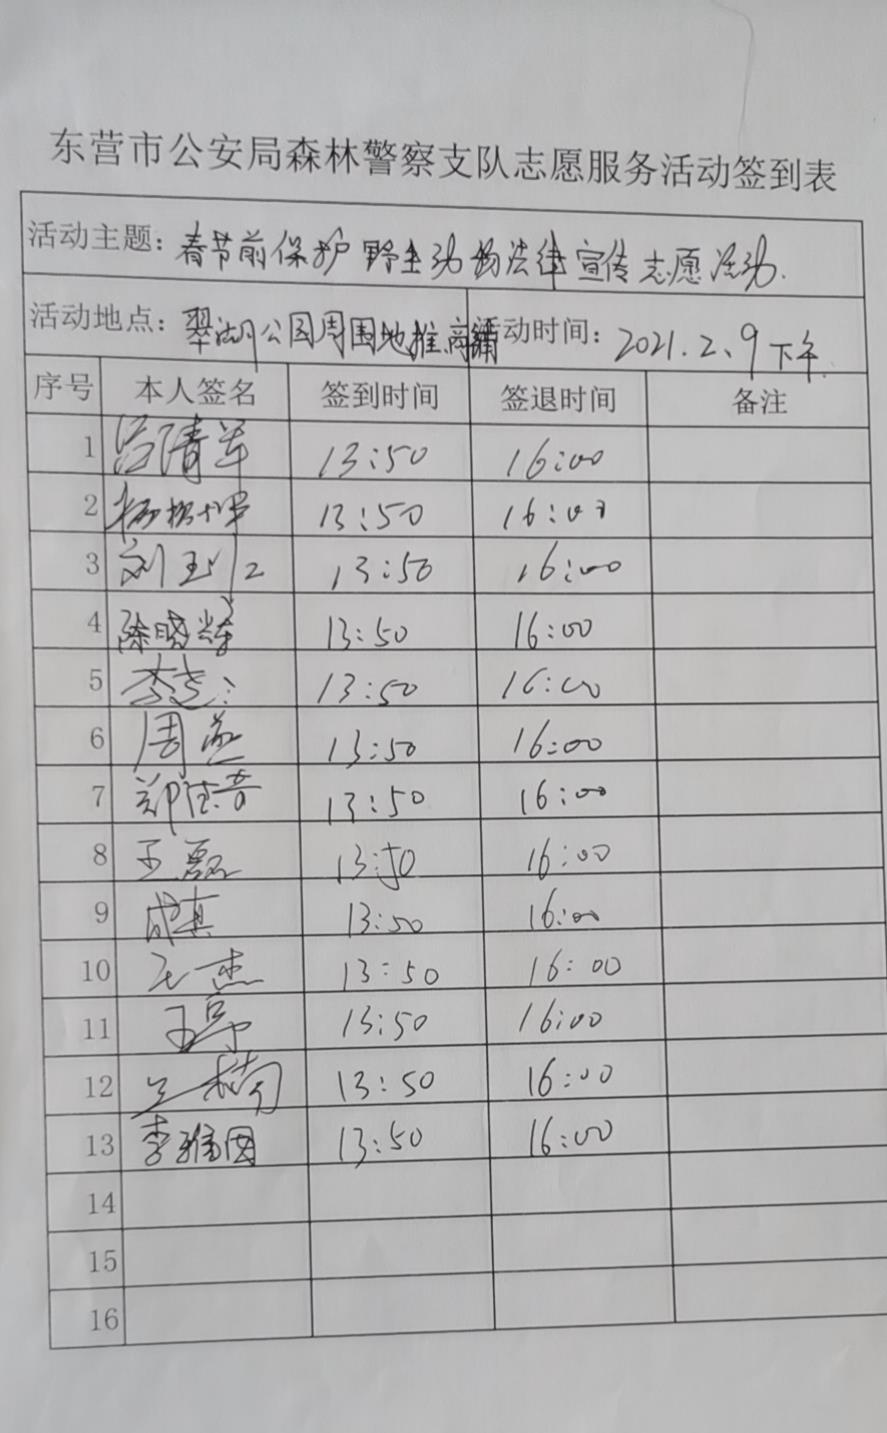 东营市公安局森林警察支队志愿服务活动签到表
活动主题：春节前保护野生动物法律宣传志愿活动.
活动地点：翠湖公园周围地摊、商铺 活动时间：2021.2.9下午.
序号 本人签名 签到时间 签退时间 备注
1 吕清军 13:50 16:00
2 13:50 16:00
3 刘玉 13:50 16:00
4 陈晓辉 13:50 16:00
5 李 13:50 16:00
6 周燕 13:50 16:00
7 郑佳音 13:50 16:00
8 王磊 13:50 16:00
9 成真 13:50 16:00
10 王杰 13:50 16:00
11 王亭 13:50 16:00
12 王楠 13:50 16:00
13 李雅图 13:50 16:00
14
15
16